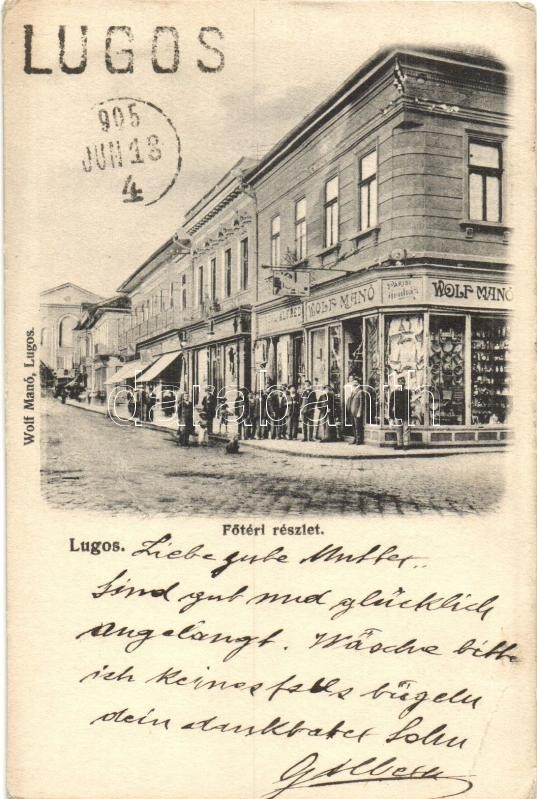 LUGOS
905
JUN 18
4
ALFRÉD
WOLF MANÓ
PÁRISI
WOLF MANÓ
Wolf Manó, Lugos.
darabanth
Főtéri részlet.
Lugos.
Liebe gute Mutter..
Sind gut und glücklich
angelangt. Wäsche bitte
ich keinesfalls bügeln
dein dankbarer Sohn